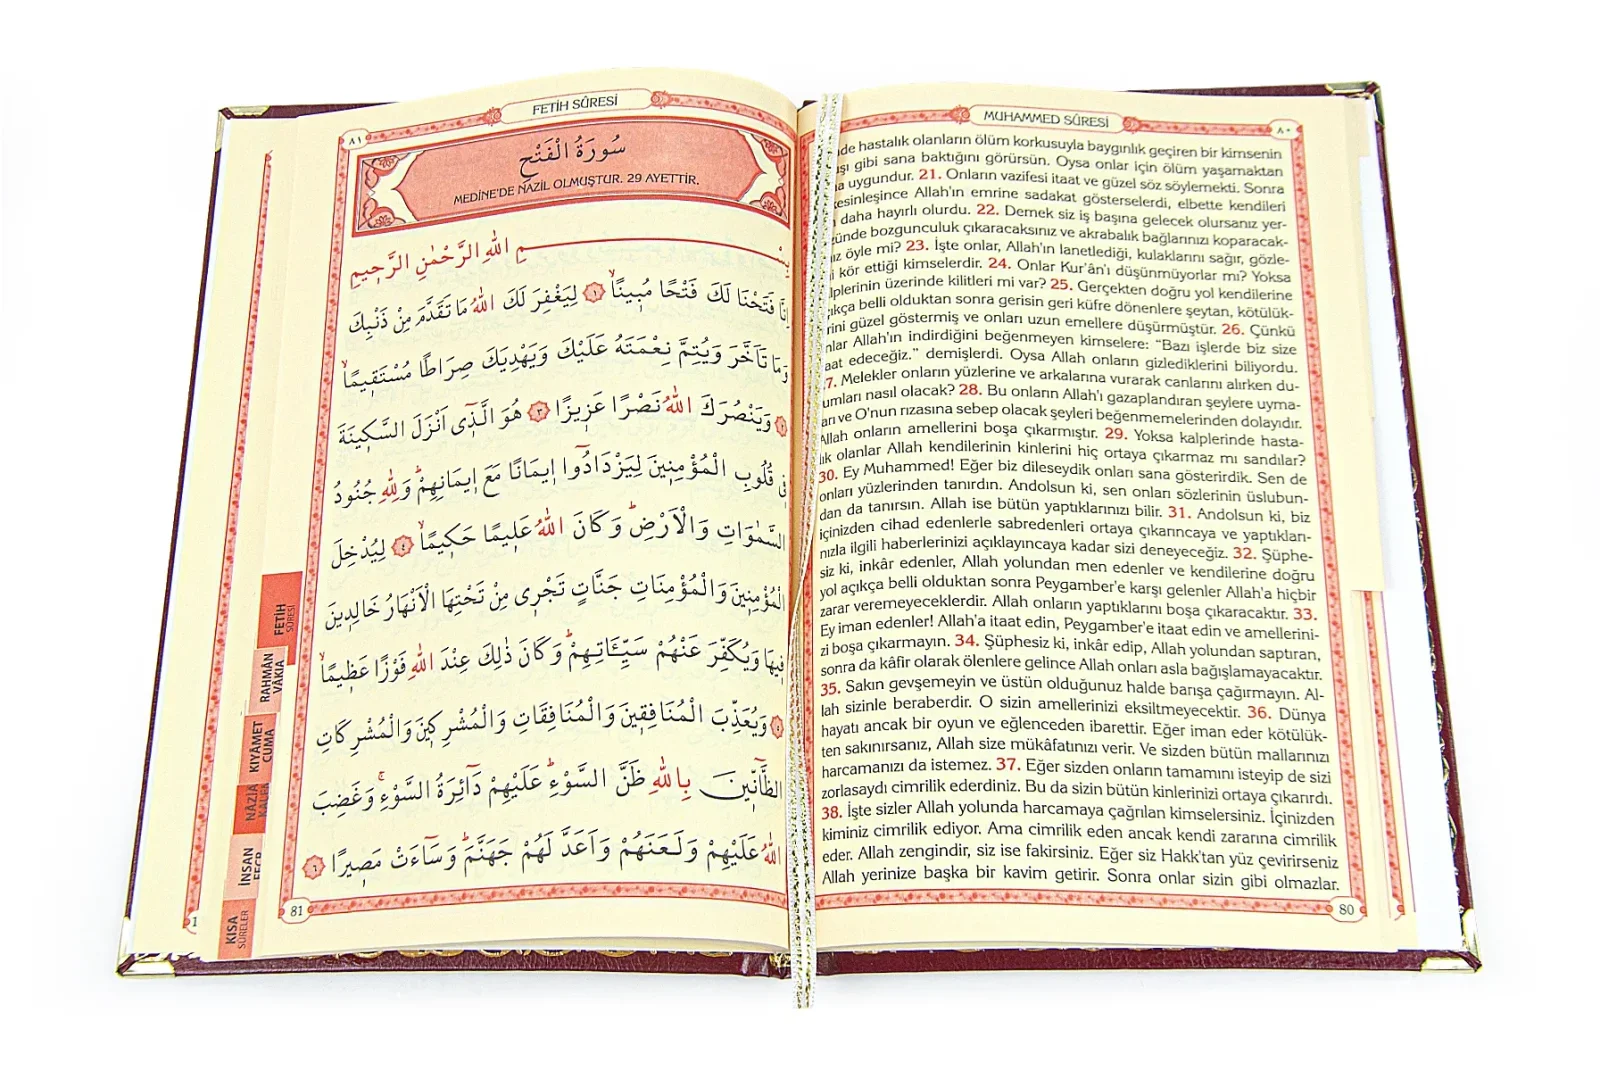 MUHAMMED SÛRESİ
٨٠
de hastalık olanların ölüm korkusuyla baygınlık geçiren bir kimsenin
gibi sana baktığını görürsün. Oysa onlar için ölüm yaşamaktan
uygundur. 21. Onların vazifesi itaat ve güzel söz söylemekti. Sonra
kesinleşince Allah'ın emrine sadakat gösterselerdi, elbette kendileri
daha hayırlı olurdu. 22. Demek siz iş başına gelecek olursanız yer-
ünde bozgunculuk çıkaracaksınız ve akrabalık bağlarınızı koparacak-
öyle mi? 23. İşte onlar, Allah'ın lanetlediği, kulaklarını sağır, gözle-
kör ettiği kimselerdir. 24. Onlar Kur'ân'ı düşünmüyorlar mı? Yoksa
alplerinin üzerinde kilitleri mi var? 25. Gerçekten doğru yol kendilerine
ıkça belli olduktan sonra gerisin geri küfre dönenlere şeytan, kötülük-
rini güzel göstermiş ve onları uzun emellere düşürmüştür. 26. Çünkü
nlar Allah'ın indirdiğini beğenmeyen kimselere: “Bazı işlerde biz size
aat edeceğiz.” demişlerdi. Oysa Allah onların gizlediklerini biliyordu.
7. Melekler onların yüzlerine ve arkalarına vurarak canlarını alırken du-
umları nasıl olacak? 28. Bu onların Allah'ı gazaplandıran şeylere uyma-
arı ve O'nun rızasına sebep olacak şeyleri beğenmemelerinden dolayıdır.
Allah onların amellerini boşa çıkarmıştır. 29. Yoksa kalplerinde hasta-
lık olanlar Allah kendilerinin kinlerini hiç ortaya çıkarmaz mı sandılar?
30. Ey Muhammed! Eğer biz dileseydik onları sana gösterirdik. Sen de
onları yüzlerinden tanırdın. Andolsun ki, sen onları sözlerinin üslubun-
dan da tanırsın. Allah ise bütün yaptıklarınızı bilir. 31. Andolsun ki, biz
içinizden cihad edenlerle sabredenleri ortaya çıkarıncaya ve yaptıkları-
nızla ilgili haberlerinizi açıklayıncaya kadar sizi deneyeceğiz. 32. Şüphe-
siz ki, inkâr edenler, Allah yolundan men edenler ve kendilerine doğru
yol açıkça belli olduktan sonra Peygamber'e karşı gelenler Allah'a hiçbir
zarar veremeyeceklerdir. Allah onların yaptıklarını boşa çıkaracaktır. 33.
Ey iman edenler! Allah'a itaat edin, Peygamber'e itaat edin ve amellerini-
zi boşa çıkarmayın. 34. Şüphesiz ki, inkâr edip, Allah yolundan saptıran,
sonra da kâfir olarak ölenlere gelince Allah onları asla bağışlamayacaktır.
35. Sakın gevşemeyin ve üstün olduğunuz halde barışa çağırmayın. Al-
lah sizinle beraberdir. O sizin amellerinizi eksiltmeyecektir. 36. Dünya
hayatı ancak bir oyun ve eğlenceden ibarettir. Eğer iman eder kötülük-
ten sakınırsanız, Allah size mükâfatınızı verir. Ve sizden bütün mallarınızı
harcamanızı da istemez. 37. Eğer sizden onların tamamını isteyip de sizi
zorlasaydı cimrilik ederdiniz. Bu da sizin bütün kinlerinizi ortaya çıkarırdı.
38. İşte sizler Allah yolunda harcamaya çağrılan kimselersiniz. İçinizden
kiminiz cimrilik ediyor. Ama cimrilik eden ancak kendi zararına cimrilik
eder. Allah zengindir, siz ise fakirsiniz. Eğer siz Hakk'tan yüz çevirirseniz
Allah yerinize başka bir kavim getirir. Sonra onlar sizin gibi olmazlar.
80
FETİH SÛRESİ
٨١
سُورَةُ الْفَتْحِ
MEDİNE'DE NAZİL OLMUŞTUR. 29 AYETTİR.
بِسْمِ اللّٰهِ الرَّحْمٰنِ الرَّحِيمِ
اِنَّا فَتَحْنَا لَكَ فَتْحًا مُبِينًاۙ ﴿١﴾ لِيَغْفِرَ لَكَ اللّٰهُ مَا تَقَدَّمَ مِنْ ذَنْبِكَ
وَمَا تَاَخَّرَ وَيُتِمَّ نِعْمَتَهُ عَلَيْكَ وَيَهْدِيَكَ صِرَاطًا مُسْتَقِيمًاۙ
﴿٢﴾ وَيَنْصُرَكَ اللّٰهُ نَصْرًا عَزِيزًا ﴿٣﴾ هُوَ الَّذِى اَنْزَلَ السَّكِينَةَ
فِى قُلُوبِ الْمُؤْمِنِينَ لِيَزْدَادُٓوا اِيمَانًا مَعَ اِيمَانِهِمْۜ وَلِلّٰهِ جُنُودُ
السَّمٰوَاتِ وَالْاَرْضِۜ وَكَانَ اللّٰهُ عَلِيمًا حَكِيمًاۙ ﴿٤﴾ لِيُدْخِلَ
الْمُؤْمِنِينَ وَالْمُؤْمِنَاتِ جَنَّاتٍ تَجْرِى مِنْ تَحْتِهَا الْاَنْهَارُ خَالِدِينَ
فِيهَا وَيُكَفِّرَ عَنْهُمْ سَيِّـَٔاتِهِمْۜ وَكَانَ ذٰلِكَ عِنْدَ اللّٰهِ فَوْزًا عَظِيمًاۙ
﴿٥﴾ وَيُعَذِّبَ الْمُنَافِقِينَ وَالْمُنَافِقَاتِ وَالْمُشْرِكِينَ وَالْمُشْرِكَاتِ
الظَّٓانِّينَ بِاللّٰهِ ظَنَّ السَّوْءِۜ عَلَيْهِمْ دَٓائِرَةُ السَّوْءِۚ وَغَضِبَ
اللّٰهُ عَلَيْهِمْ وَلَعَنَهُمْ وَاَعَدَّ لَهُمْ جَهَنَّمَۜ وَسَٓاءَتْ مَصِيرًا ﴿٦﴾
81
FETİH
SÛRESİ
RAHMÂN
VÂKIA
KIYÂMET
CUMA
İNSAN
KISA
SÛRELER
1